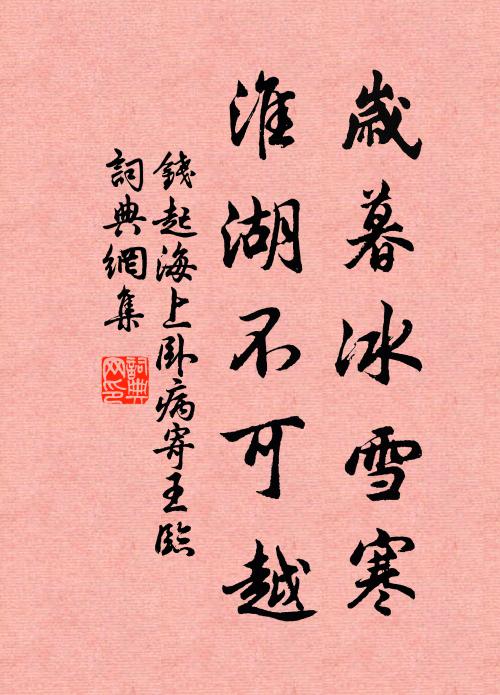 歲暮冰雪寒
淮湖不可越
錢起海上臥病寄王臨
詞典網集
詞典網印